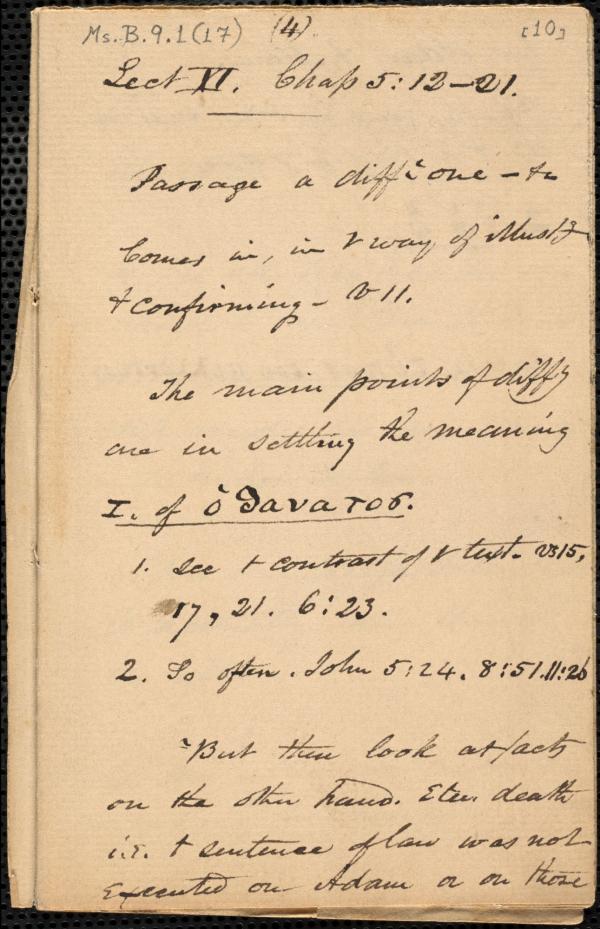 Ms. B. 9. 1 (17) (4). [10]
Lect VI. Chap 5: 12-21.
Passage a diffc one -
Comes in, in t way of illustg
& confirming - v 11.
The main points of diffy
are in settling the meaning
I. of ὁ θανατος.
1. See t contrast of t text. vs 15,
17, 21. 6:23.
2. So often. John 5:24. 8:51. 11:26
But then look at facts
on the other hand. Eter. death
i.e. t sentence of law was not
Executed on Adam or on those